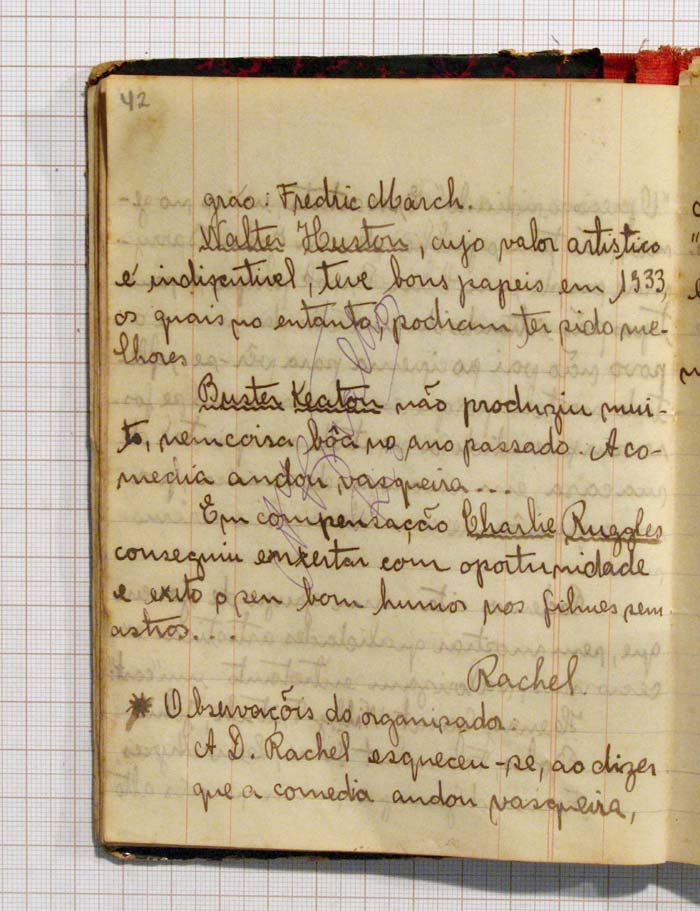 42
grao: Fredric March.
Walter Huston, cujo valor artistico
é indiscutivel, teve bons papeis em 1933,
os quais no entanto, podiam ter sido me-
lhores
Buster Keaton não produziu mui-
to, nem coisa bôa no ano passado. A co-
media andou vasqueira...
Em compensação Charlie Ruggles
conseguiu enxertar com oportunidade
e exito o seu bom humor nos filmes sem
astros...
Rachel.
* Observações do organisador.
A D. Rachel esqueceu-se, ao dizer
que a comedia andou vasqueira,